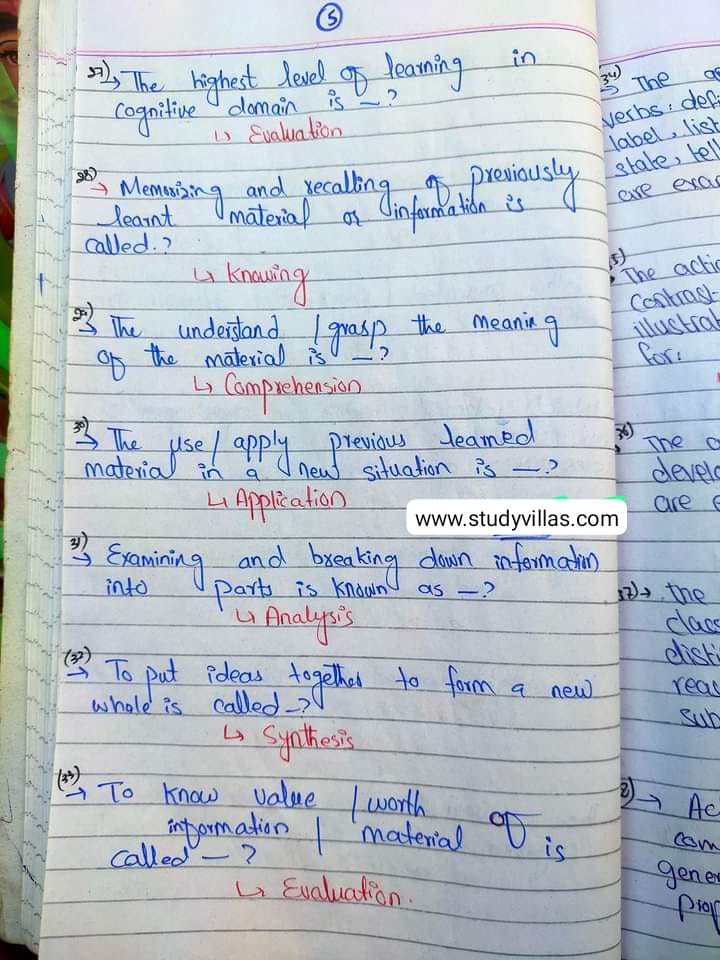 5
27) → The highest level of learning in
cognitive domain is —?
↳ Evaluation
28) → Memorizing and recalling of previously
learnt material or information is
called.?
↳ Knowing
29) → The understand / grasp the meaning
of the material is —?
↳ Comprehension
30) → The use / apply previous learned
material in a new situation is —?
↳ Application
www.studyvillas.com
31) → Examining and breaking down information
into parts is known as —?
↳ Analysis
(32) → To put ideas together to form a new
whole is called —?
↳ Synthesis
(33) → To know value / worth of
information / material is
called —?
↳ Evaluation.
34) → The
verbs:
label, list
state, tell
are
The
Contrast
illustrat
for:
36) The
develo
are
37) → the
clas
dist
reas
sub
→ Ac
com
gene
prop